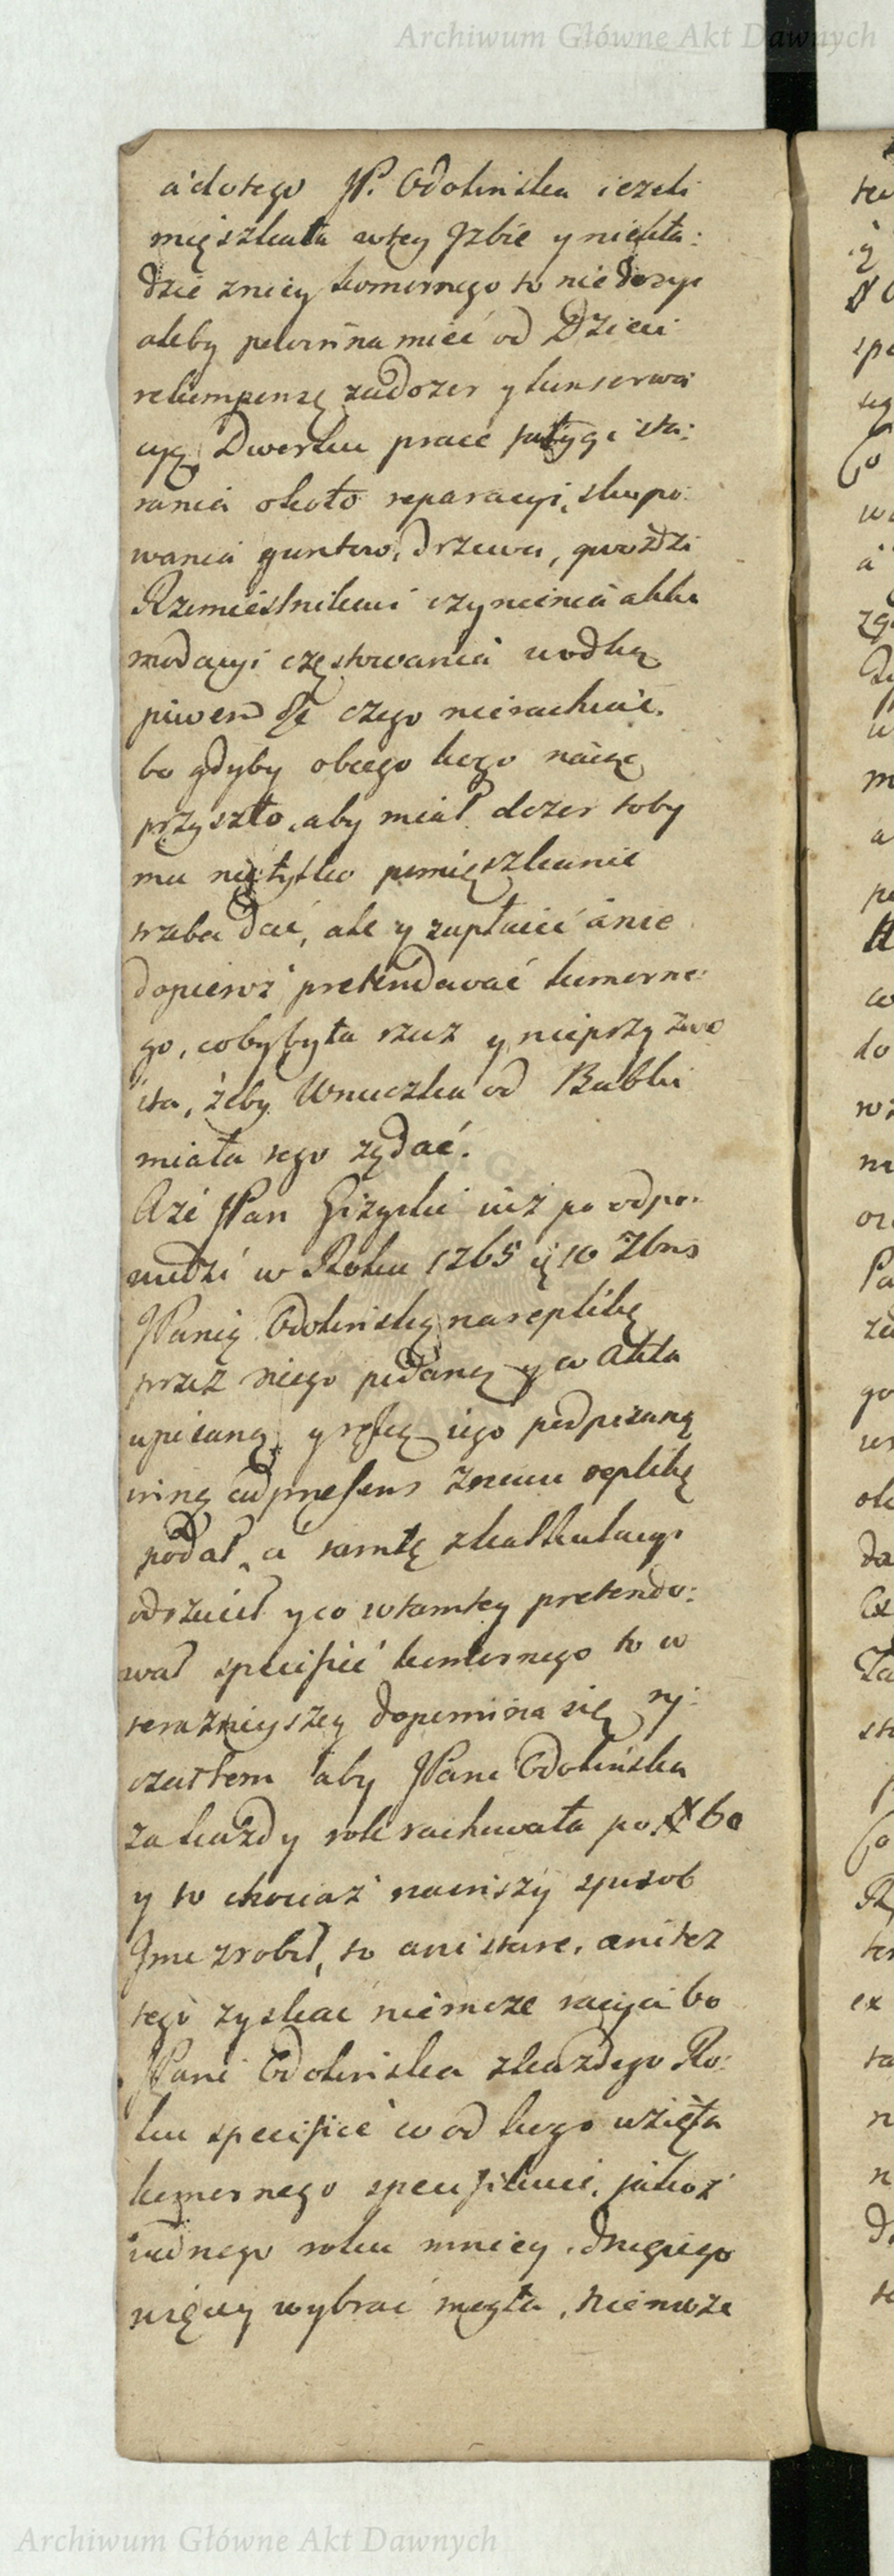 Archiwum Główne Akt Dawnych
a do tego JP. Odolinska iezeli
mięszkała wtey Jzbie y niekła:
dzie zniey komornego to nie dosyc
aleby powinna mieć od Dzieci
rekompensę zadozor y konserwa
cyą Dworku prace fatygi sta:
rania około reparacyi, skupo:
wania guntow, drzewa, gwozdzi
Rzemieslnikowi czynienia akko
modacyi częstowania wodką
piwem &c czego nierachuie,
bo gdyby obcego kogo naiąc
przyszło, aby miał dozor toby
mu nietylko pomięszkanie
trzeba dać, ale y zapłacić ánie
dopieroż pretendować komorne:
go, coby była rzecz y nieprzyzwo
ita, żeby Wnuczka od Babki
miała tego ządać.
Aże JPan Giżycki iuż po odpo:
wiedzi w Roku 1765 10 Xbris
JPanię Odolińską na replikę
przez niego podaną y w Akta
wpisaną y ręką iego podpisaną
inną ad præsens znowu replikę
podał, a tamtę zkalkulacyi
odrzucił y co wtamtey pretendo:
wał specific komornego to w
teraznieyszey dopomina się ry:
czałtem aby JPani Odolińska
za każdy rok rachowała po 60
y to chociaż na inszy sposob
Jmc zrobił, to ani stare, ani tez
tego zyskać niemoże racyi bo
JPani Odolinska zkażdego Ro:
ku specific co od kogo wzięła
komornego specifikuie, jakoż
iednego roku mniey, drugiego
więcey wybrać mogła, niemoże
Archiwum Główne Akt Dawnych